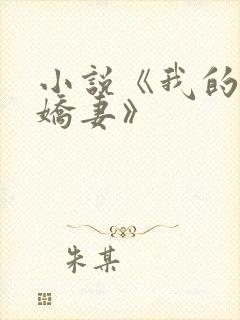 小説《我的
嬌妻》
朱某